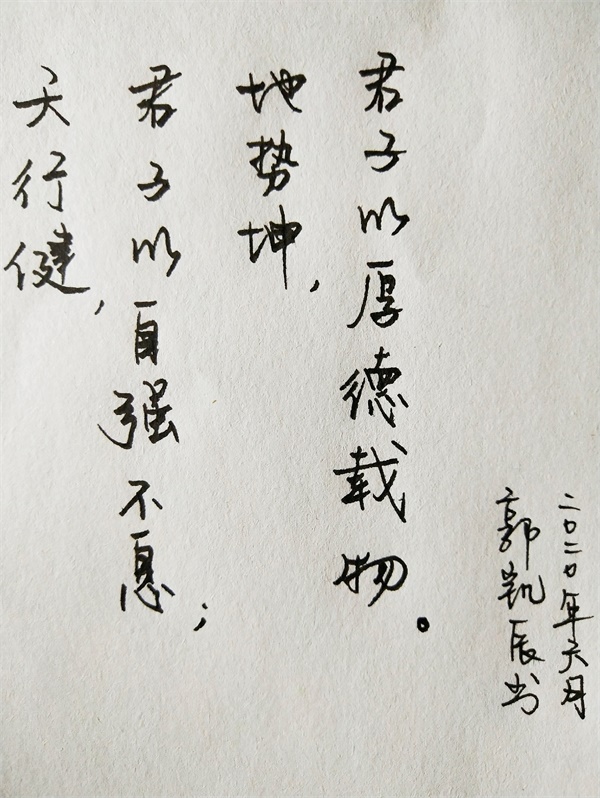 天行健，
君子以自强不息；
地势坤，
君子以厚德载物。
郭凯辰书
二〇二〇年六月